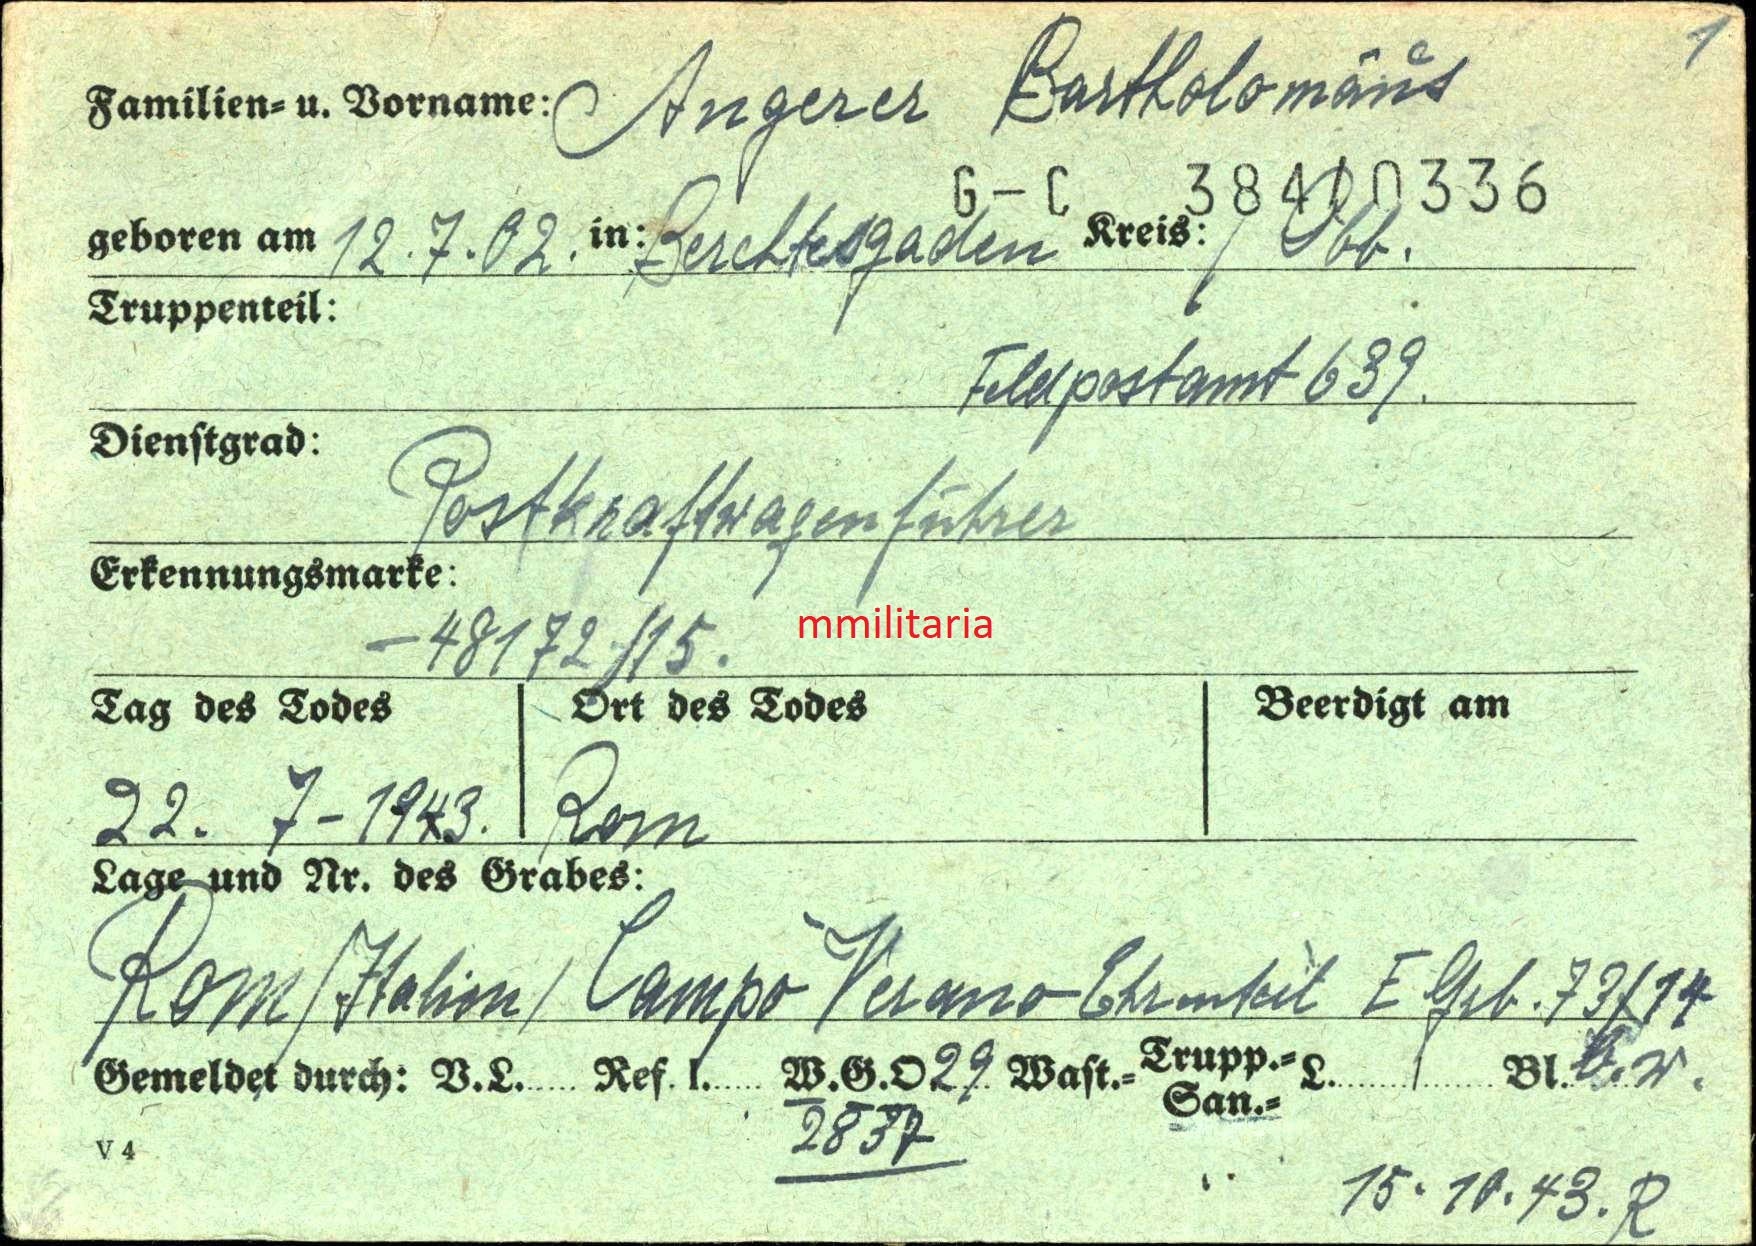 1
Familien- u. Vorname: Angerer Bartholomäus
G-C 38410336
geboren am 12.7.02. in: Berchtesgaden Kreis: / Obb.
Truppenteil:
Feldpostamt 639.
Dienstgrad:
Postkraftwagenführer
Erkennungsmarke:
-48172/15.
mmilitaria
Tag des Todes Ort des Todes Beerdigt am
22. 7-1943. Rom
Lage und Nr. des Grabes:
Rom/Italien/ Campo Verano Ehrenteil E Grb. 73/14
Gemeldet durch: V.L..... Ref. I...... W.G.O 29 Wast.- Trupp.- San.- L........ Bl. b.w.
2837
V 4
15.10.43. R